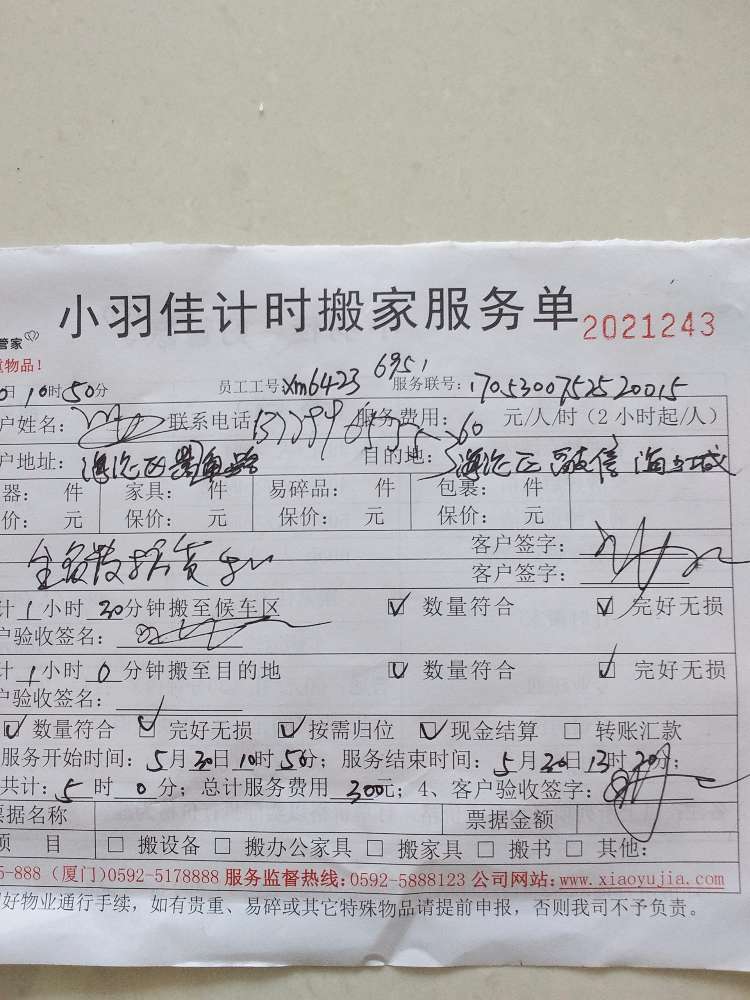 小羽佳计时搬家服务单 2021243
管家
重物品！
日10时50分 员工工号：xm6423 6951 服务联号：1705300752520015
户姓名： 联系电话 服务费用：60 元/人/时（2小时起/人）
户地址：海沧区 路 目的地：海沧区 城
器： 件 家具： 件 易碎品： 件 包裹： 件
价： 元 保价： 元 保价： 元 保价： 元
客户签字：
客户签字：
计1小时30分钟搬至候车区 ☑ 数量符合 ☑ 完好无损
户验收签名：
计1小时0分钟搬至目的地 ☑ 数量符合 ☑ 完好无损
户验收签名：
☑ 数量符合 ☑ 完好无损 ☑ 按需归位 ☑ 现金结算 □ 转账汇款
服务开始时间：5月30日10时50分；服务结束时间：5月30日13时20分；
共计：5时0分；总计服务费用300元；4、客户验收签字：
票据名称 票据金额
项 目 □ 搬设备 □ 搬办公家具 □ 搬家具 □ 搬书 □ 其他：
5-888（厦门）0592-5178888 服务监督热线：0592-5888123 公司网站：www.xiaoyujia.com
好物业通行手续，如有贵重、易碎或其它特殊物品请提前申报，否则我司不予负责。